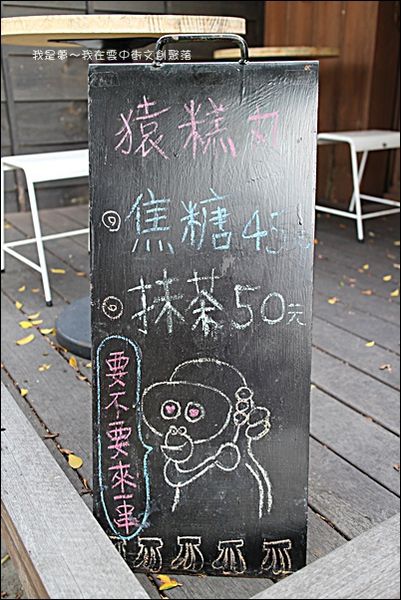 我是蓼～我在雲中街文創聚落
猿糕丸
◎焦糖45元
◎抹茶50元
要不要來串